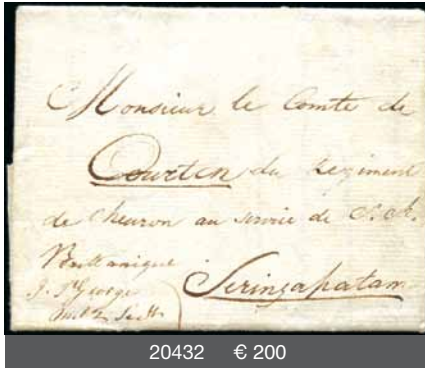 Monsieur le Comte de
Courten du Regiment
de Cheuron au servic de S. A.
Brittanique
Seringapatam
J. St George
20432 € 200